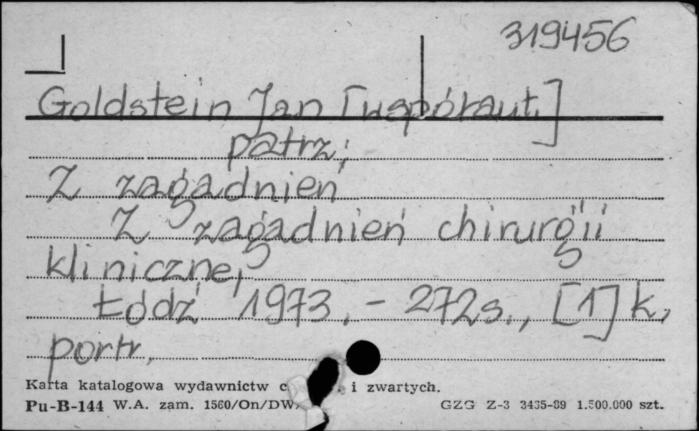 319456
Goldstein Jan [współaut.]
patrz:
Z zagadnień
Z zagadnień chirurgii
klinicznej
Łódź 1973. - 272s., [1] k.
portr.
Karta katalogowa wydawnictw c i zwartych.
Pu-B-144 W.A. zam. 1560/On/DW. GZG Z-3 3435-89 1.500.000 szt.